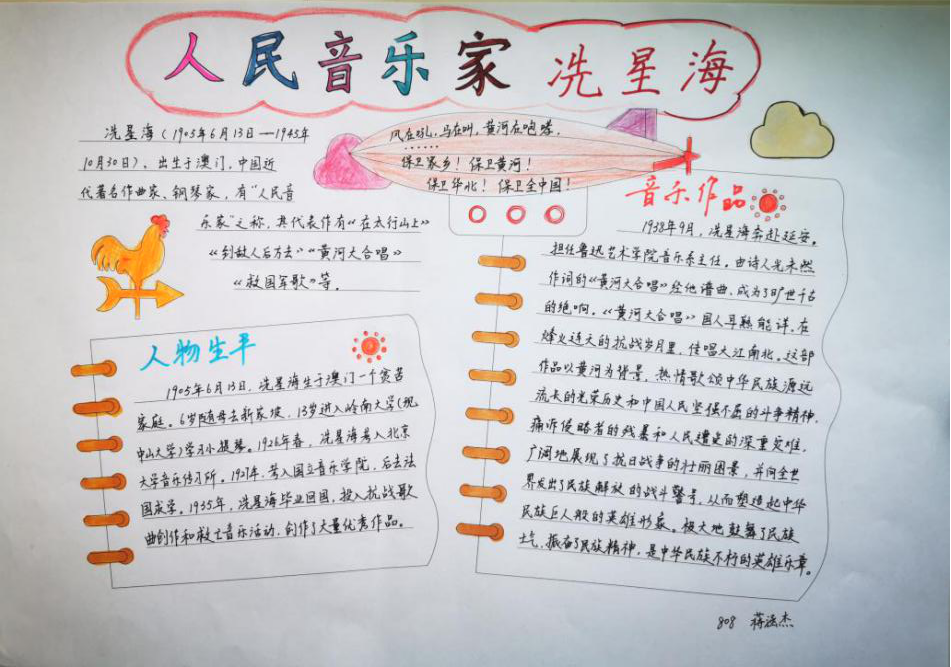 人民音乐家 冼星海
冼星海(1905年6月13日—1945年
10月30日)、出生于澳门,中国近
代著名作曲家、钢琴家,有“人民音
乐家”之称,其代表作有《在太行山上》
《到敌人后方去》《黄河大合唱》
《救国军歌》等。
风在吼,马在叫,黄河在咆哮,
……
保卫家乡!保卫黄河!
保卫华北!保卫全中国!
人物生平
1905年6月13日,冼星海生于澳门一个贫苦
家庭。6岁随母去新家坡,13岁进入岭南大学(现
中山大学)学习小提琴。1926年春,冼星海考入北京
大学音乐传习所。1927年,考入国立音乐学院,后去法
国求学。1935年,冼星海毕业回国,投入抗战歌
曲创作和救亡音乐活动,创作了大量优秀作品。
音乐作品
1938年9月,冼星海奔赴延安。
担任鲁迅艺术学院音乐系主任。由诗人光未然
作词的《黄河大合唱》经他谱曲,成为了旷世千古
的绝响。《黄河大合唱》国人耳熟能详,在
烽火连天的抗战岁月里,传唱大江南北。这部
作品以黄河为背景,热情歌颂中华民族源远
流长的光荣历史和中国人民坚强不屈的斗争精神,
痛诉侵略者的残暴和人民遭受的深重灾难,
广阔地展现了抗日战争的壮丽图景,并向全世
界发出了民族解放的战斗警号,从而塑造起中华
民族巨人般的英雄形象。极大地鼓舞了民族
士气,振奋了民族精神,是中华民族不朽的英雄乐章。
808 蒋涵杰